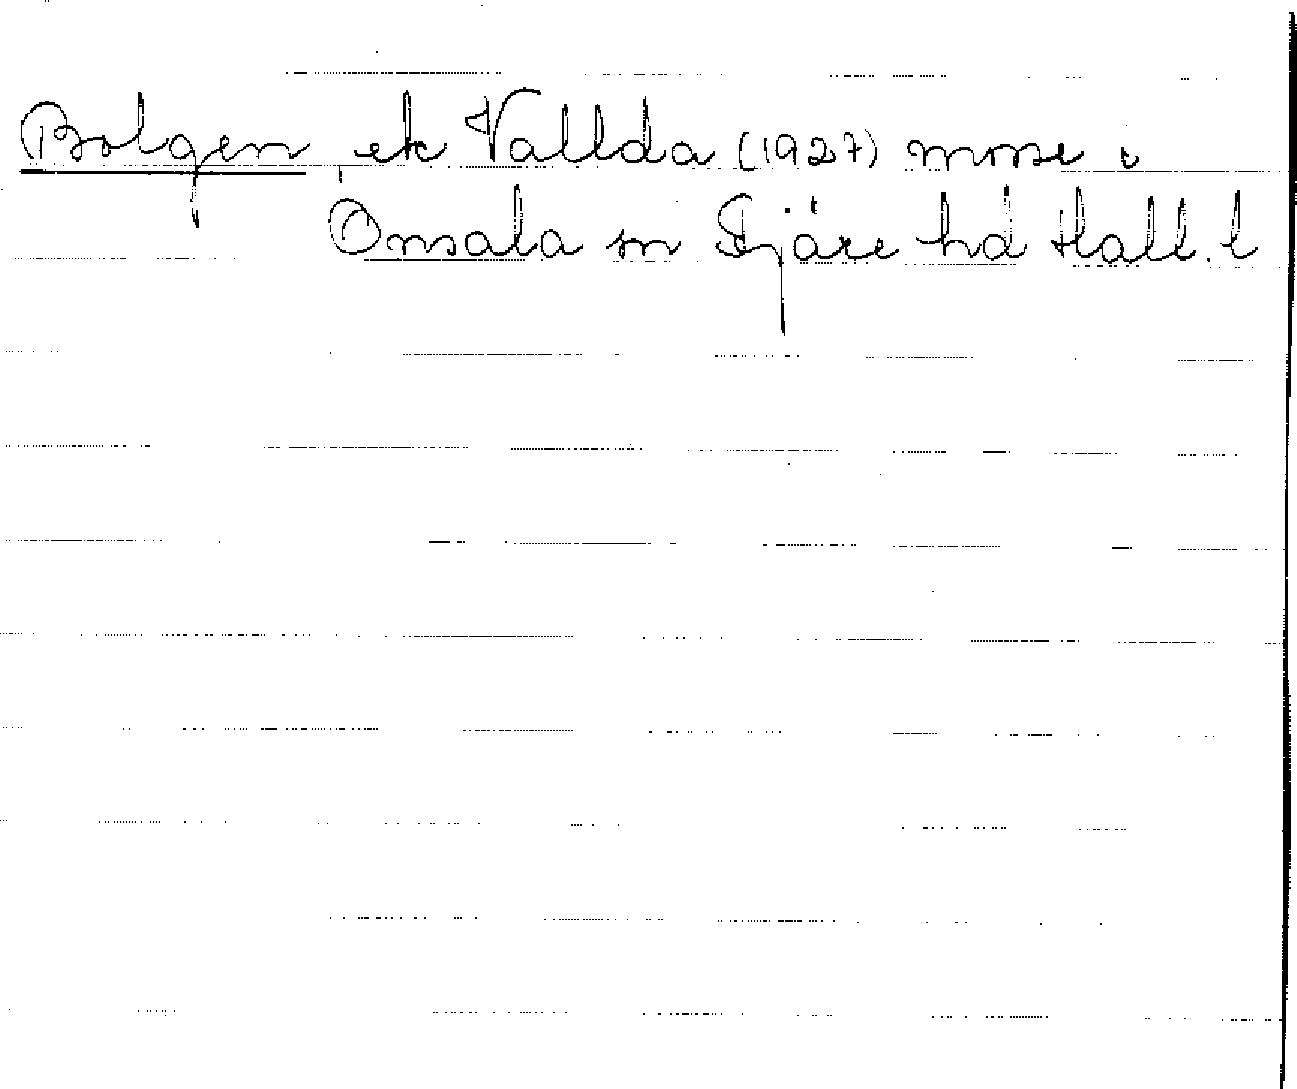 Bolgen, ek Vallda (1927) mosse i
Onsala sn Fjäre hd Hall. l